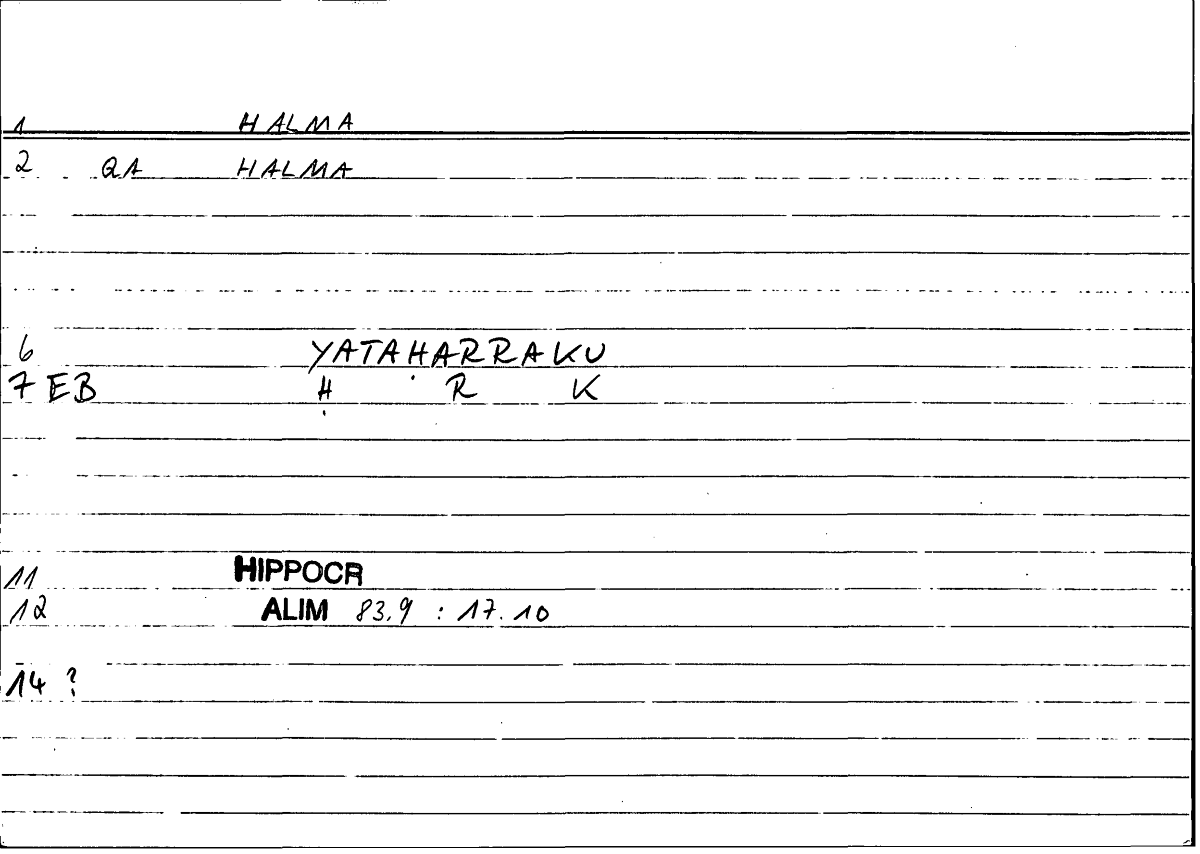 1 HALMA
2 QA HALMA
6 YATAḤARRAKU
7 EB Ḥ R K
11 HIPPOCR
12 ALIM 83.9 : 17.10
14 ?